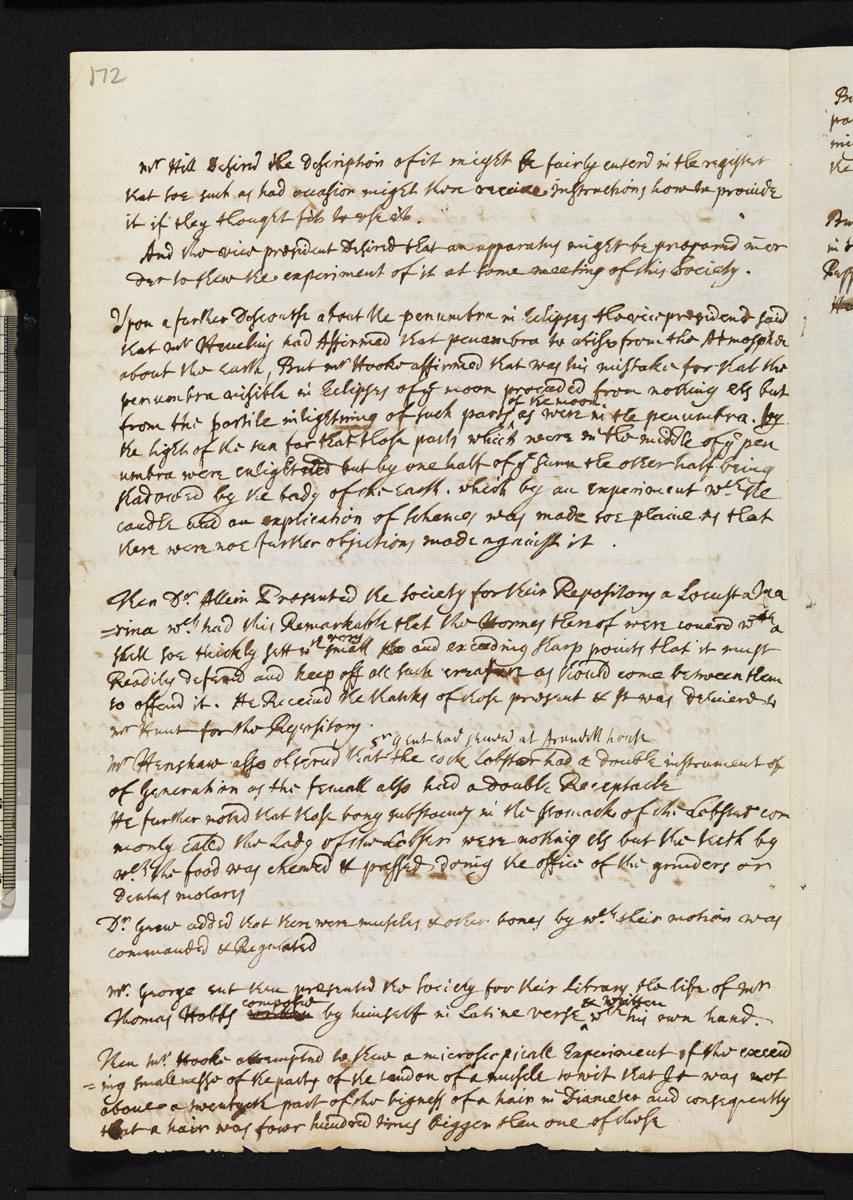 172
Mr Hill Desired the Description of it might be fairly enterd in the register
that soe such as had occasion might there receive Instructions how to provide
it if they thought fit to use it.
And the vice president Desired that an apparatus might be prepared in or
der to shew the experiment of it at some meeting of this Society.
Upon a further Discourse about the penumbra in Eclipses the vice president said
that mr Hevelius had Affirmed that penumbra to arise from the Atmosphere
about the earth, But mr Hooke affirmed that was his mistake for that the
penumbra visible in Eclipses of ye moon proceeded from nothing els but
of the moon
from the partile inlightning of such parts as were in the penumbra. by
the light of the sun for that those parts which were in the middle of ye pen
umbra were enlightned but by one half of ye Sunn the other half being
shadowed by the body of the earth. which by an experiment wth the
candle and an explication of schemes was made soe plaine as that
there were noe further objections made against it.
Then Dr Allein Presented the Society for their Repository a Locusta Ma
=rina wch had this Remarkable that the Hornes therof were coverd wth a
very
shell soe thickly sett wth small and exceeding sharp points that it must
Readily defend and keep off all such creature as should come between them
to offend it. He Received the thanks of those present & It was deliverd to
mr Hunt for the Repository.
Sr Gent had shewd at Arundell house
Mr Henshaw also observed that the cock Lobster had a double instrument of
of Generation as the female also had a double Receptacle
He further noted that those bony substances in the stomack of the Lobster com
monly called the Lady of the Lobster were nothing els but the teeth by
wch the food was chewed & passed, doing the office of the grinders or
Dentes molares
Dr Grew added that there were muscles & other bones by wch their motion was
commanded & Regulated
Mr. George ent then presented the Society for their Library the life of Mr
composed & written
Thomas Hobbs written by himself in Latine verse wth his own hand.
Then Mr. Hooke attempted to shew a microscopicall Experiment of the exceed
=ing smallnesse of the parts of the tendon of a muscle to wit that It was not
above a twentyeth part of the bigness of a hair in Diameter and consequently
that a hair was fower hundred times bigger then one of those